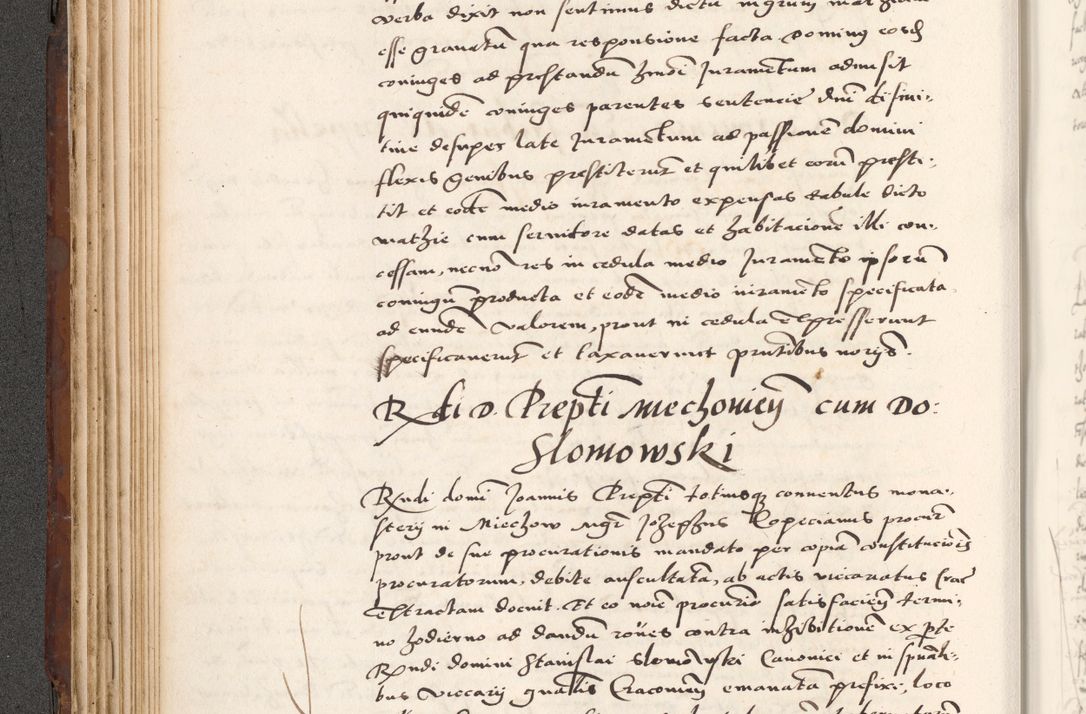 verba dixit non sentimus dictu nigrum
esse gravatũ qua responsione facta Dominus eosd
coniuges ad prestandũ hmõi Juramẽtum admisit
quiquidẽ coniuges parentes sentencie dnĩ difini,
tive desuper late Juramẽtum ad passionẽ domini
flexis genibus prestiterũt et quilibet eorũ presti,
tit et eodẽ medio iuramento expensas tabule dicto
mathie cum servitore datas et habitacionẽ illi con,
cessam, necnõ res in cedula medio Juramẽto ipsorũ
coniugũ producta et eodẽ medio iuramẽto specificata
ad eundẽ valorem, prout in cedula expresserunt
specificaverũt et taxaverunt prñtibus norijs.
R di D. Prepti miechovieñ cum Do:
Slomowski
Rñdi domi Joannis Prepti totiusq conventus mona,
sterij in Miechow Mgr Josephus Copecianus procur
prout de sue procurationis mandato per copiã constitucionis
procuratorum, debite auscultatã, ab actis vicariatus Crac
extractam docuit. Et eo noĩe procurio satisfacieñ termi,
no hodierno ad dandũ roñes contra inhibitionẽ ex pte
Rñdi domini Stanislai Slomowski Canonici et in spũali,
bus vicarij gñalis Cracovieñ emanatã prefixe, loco